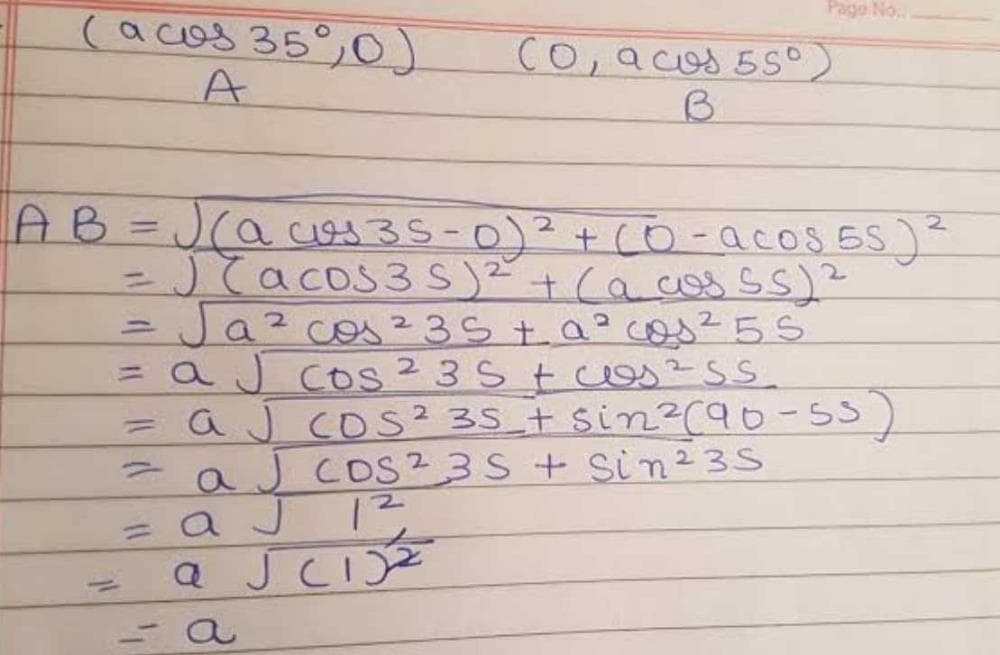 Page No..
(a cos 35°, 0) (0, a cos 55°)
A B
AB = √(a cos 35 - 0)² + (0 - a cos 55)²
= √(a cos 35)² + (a cos 55)²
= √a² cos² 35 + a² cos² 55
= a √cos² 35 + cos² 55
= a √cos² 35 + sin² (90 - 55)
= a √cos² 35 + sin² 35
= a √1²
= a √(1)²
= a